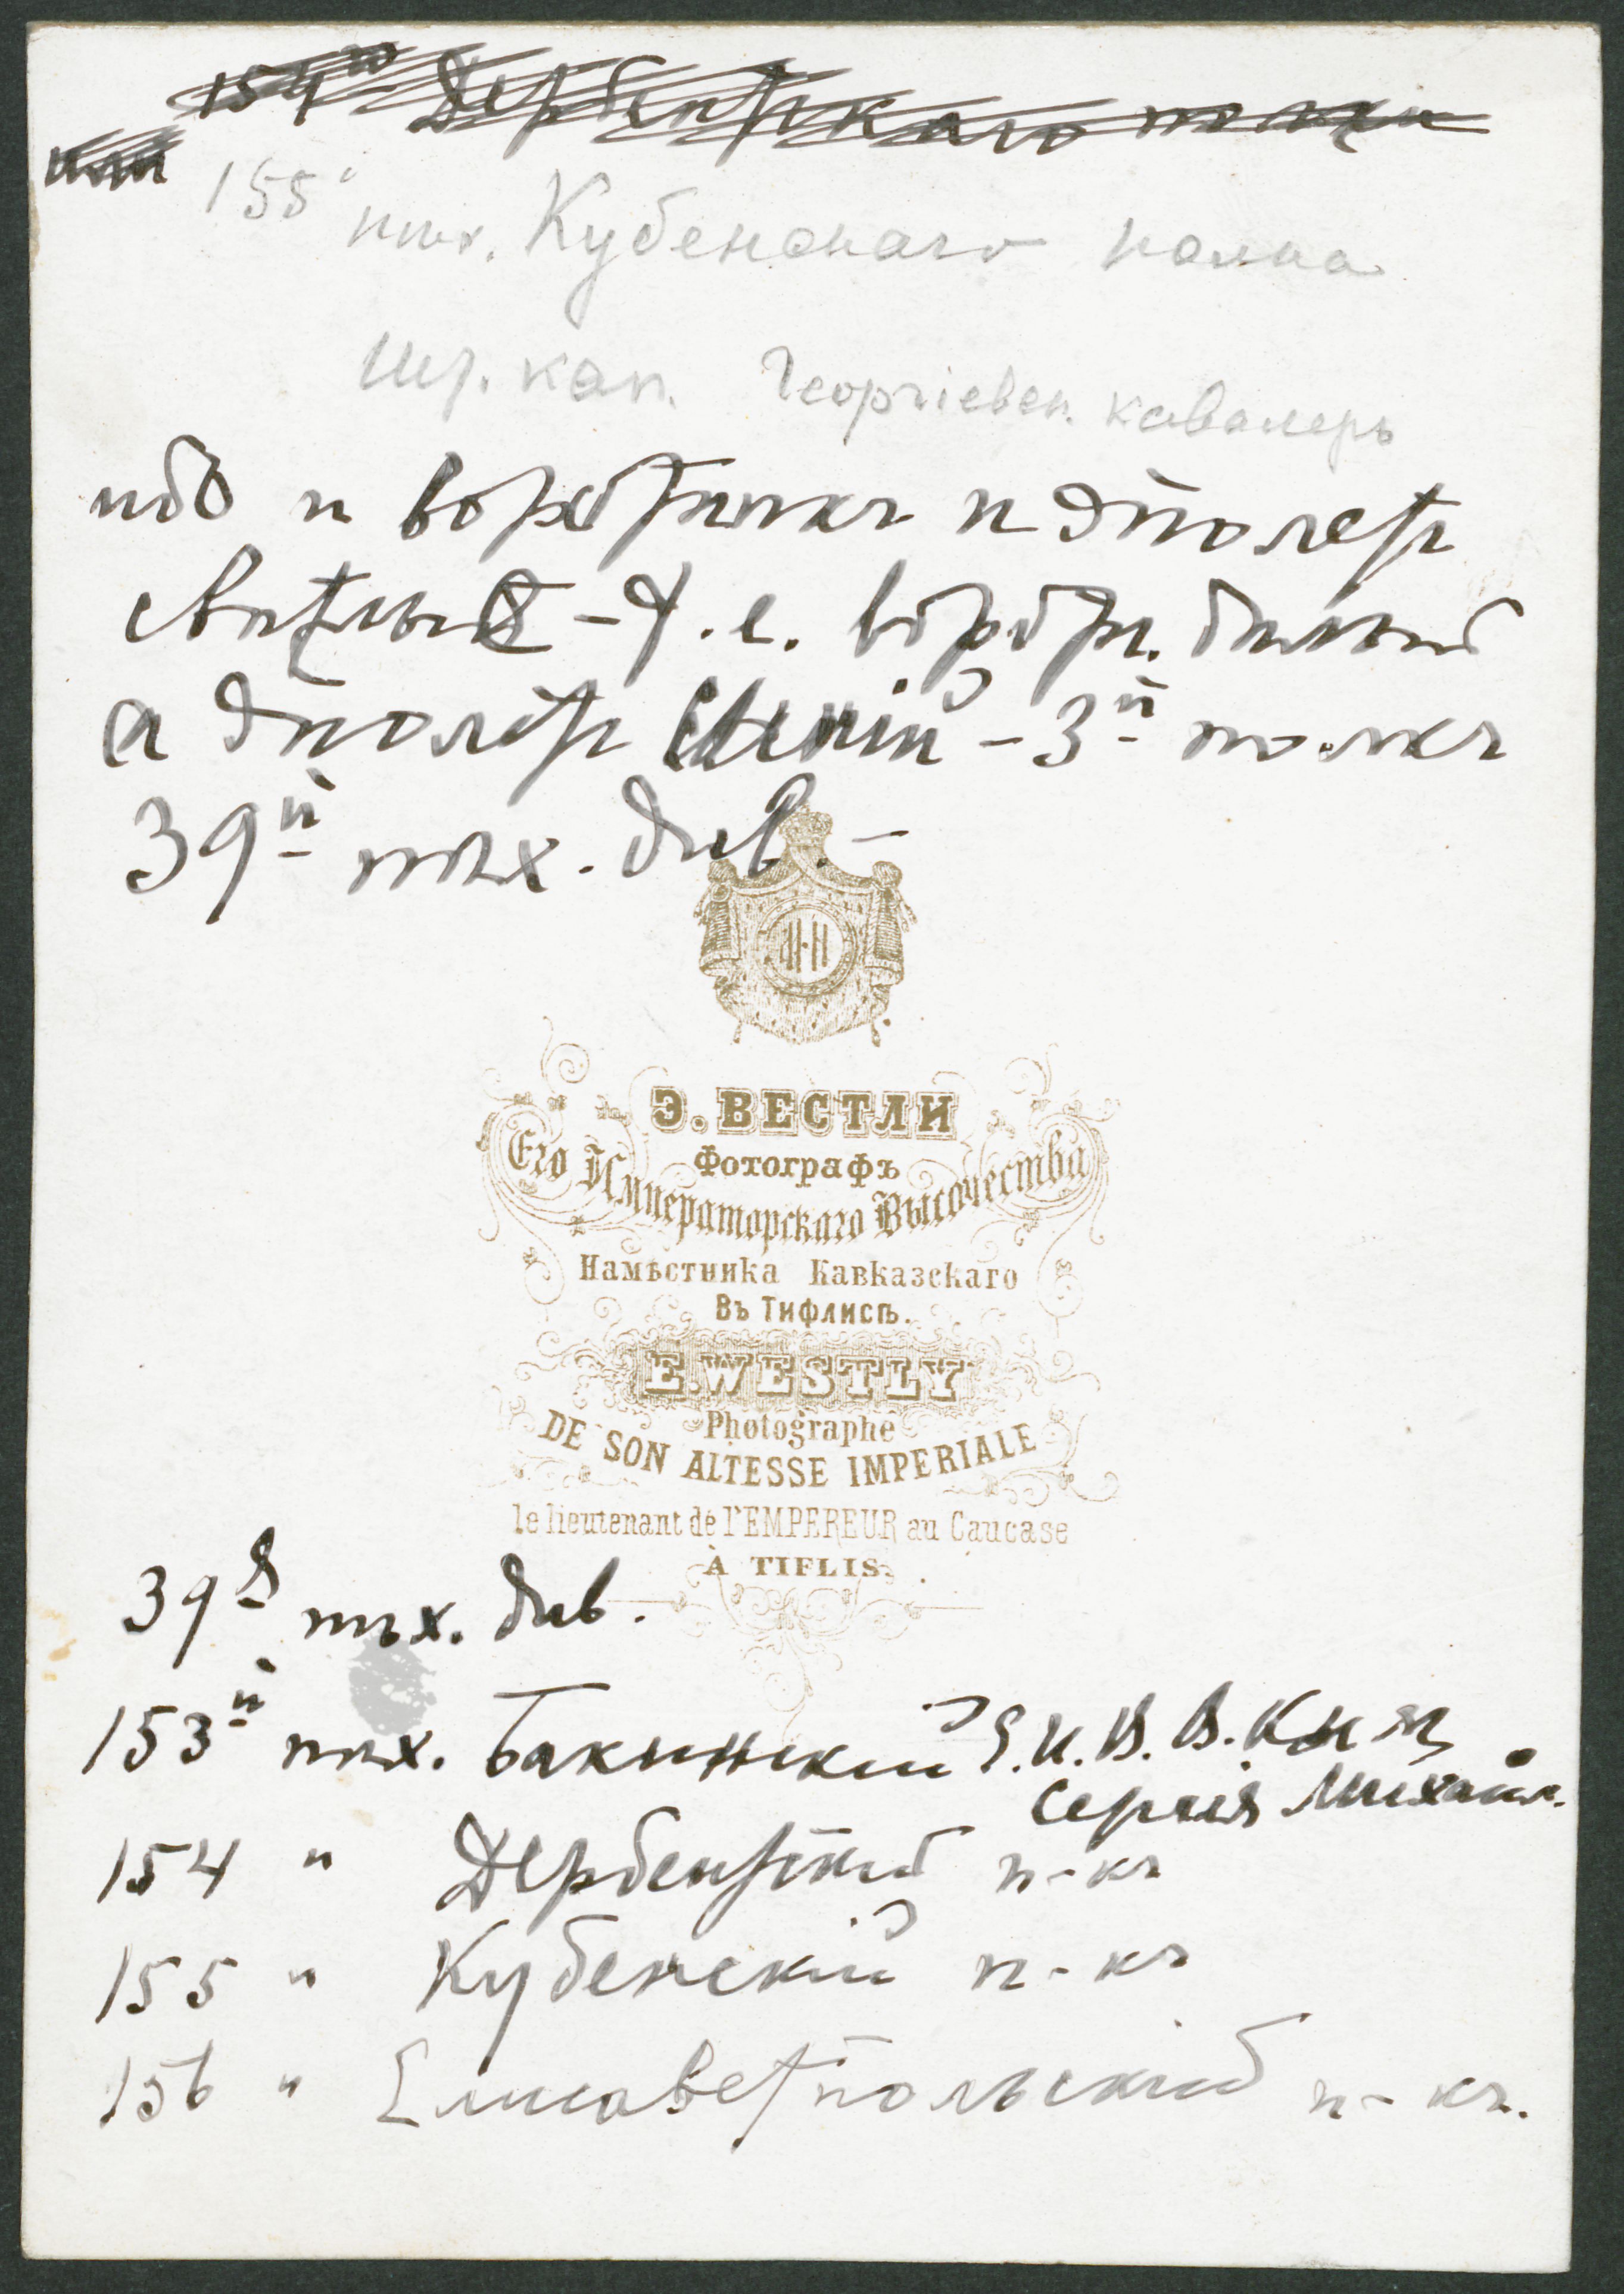 154го Дербентскаго полка
или
155го пѣх. Кубенскаго полка
Шт. кап. Георгіевск. кавалеръ
ибо и воротникъ и эполетъ
свѣтлые - т. е. воротн. бѣлый
а эполетъ синій - 3й полкъ
39й пѣх. див. -
Э. ВЕСТЛИ
Фотографъ
Его Императорскаго Высочества
Намѣстника Кавказскаго
Въ Тифлисѣ.
E. WESTLY
Photographe
DE SON ALTESSE IMPERIALE
le lieutenant de l'EMPEREUR au Caucase
À TIFLIS.
39я пѣх. див.
153й пѣх. Бакинскій Е. И. В. В. Князя
Сергія Михайл.
154 " Дербентскій п-къ
155 " Кубенскій п-къ
156 " Елисаветпольскій п-къ.